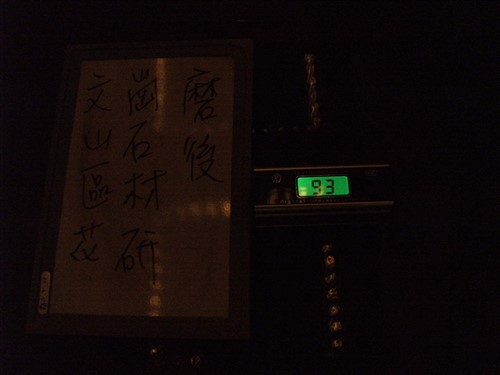 文山區花
崗石材研
磨後
93